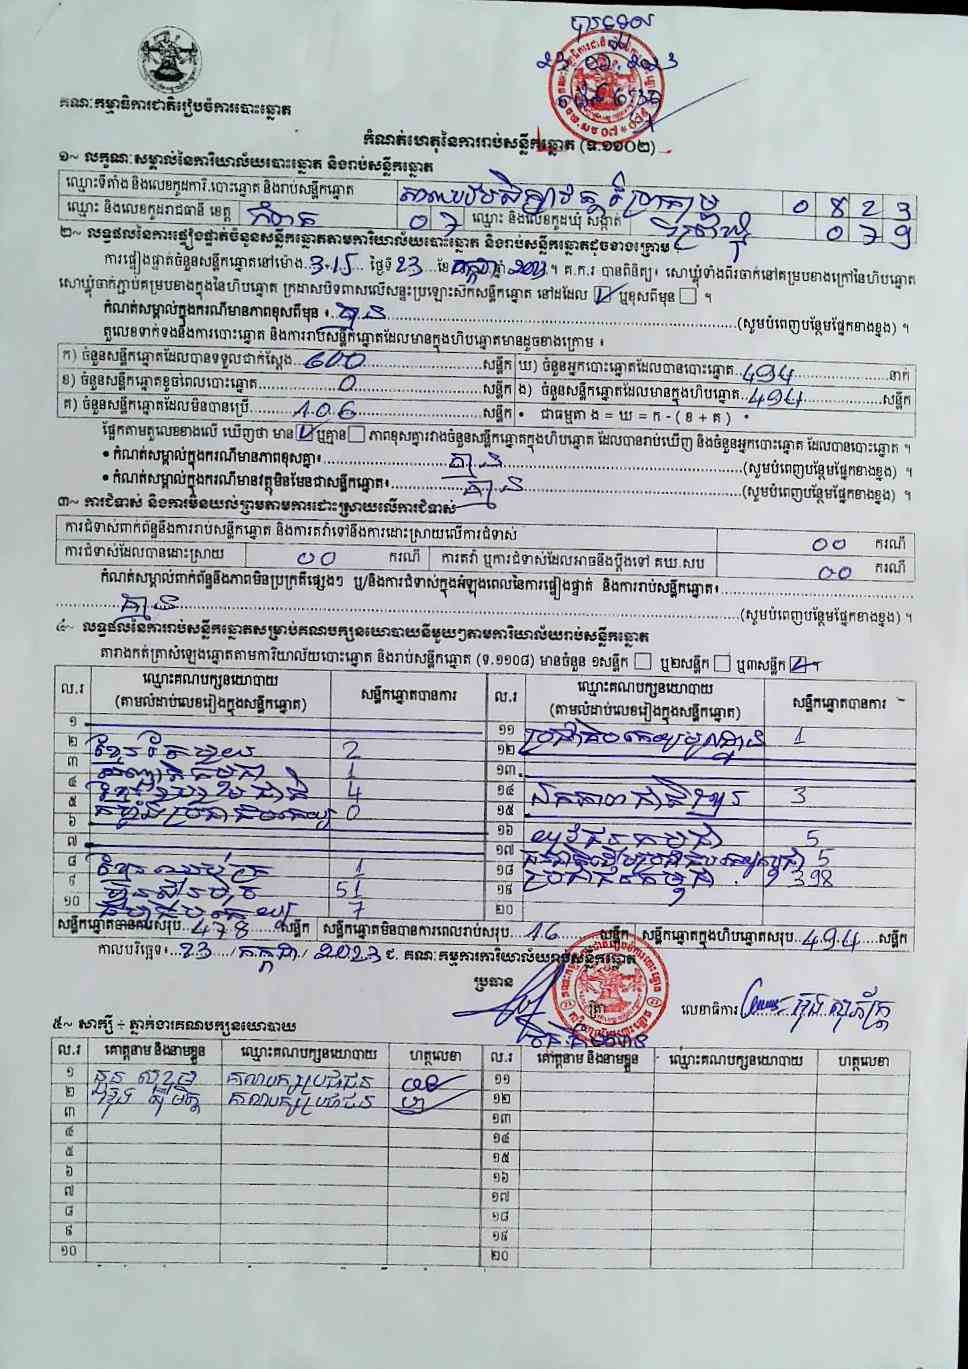 គណៈកម្មាធិការជាតិរៀបចំការបោះឆ្នោត
កំណត់ហេតុនៃការរាប់សន្លឹកឆ្នោត (ទ.១១០២)
១~ លក្ខណៈសម្គាល់នៃការិយាល័យបោះឆ្នោត និងរាប់សន្លឹកឆ្នោត
ឈ្មោះទីតាំង និងលេខកូដការិ.បោះឆ្នោត និងរាប់សន្លឹកឆ្នោត 0 8 2 3
ឈ្មោះ និងលេខកូដរាជធានី ខេត្ត កំពត 0 7 ឈ្មោះ និងលេខកូដឃុំ សង្កាត់ 0 7 9
២~ លទ្ធផលនៃការផ្ទៀងផ្ទាត់ចំនួនសន្លឹកឆ្នោតតាមការិយាល័យបោះឆ្នោត និងរាប់សន្លឹកឆ្នោតដូចខាងក្រោម
ការផ្ទៀងផ្ទាត់ចំនួនសន្លឹកឆ្នោតនៅម៉ោង 3:15 ថ្ងៃទី 23 ខែ កក្កដា ឆ្នាំ 2023។ គ.ក.រ បានពិនិត្យ៖ សោឃ្លុំទាំងពីរចាក់នៅគម្របខាងក្រៅនៃហិបឆ្នោត
សោឃ្លុំចាក់ភ្ជាប់គម្របខាងក្នុងនៃហិបឆ្នោត ក្រដាសបិទពាសលើសន្ទះប្រឡោះសឹកសន្លឹកឆ្នោត នៅដដែល ☑ ឬខុសពីមុន ☐ ។
កំណត់សម្គាល់ក្នុងករណីមានភាពខុសពីមុន ៖ គ្មាន (សូមបំពេញបន្ថែមផ្នែកខាងខ្នង) ។
តួលេខទាក់ទងនឹងការបោះឆ្នោត និងការរាប់សន្លឹកឆ្នោតដែលមានក្នុងហិបឆ្នោតមានដូចខាងក្រោម ៖
ក) ចំនួនសន្លឹកឆ្នោតដែលបានទទួលជាក់ស្តែង 600 សន្លឹក ឃ) ចំនួនអ្នកបោះឆ្នោតដែលបានបោះឆ្នោត 494 នាក់
ខ) ចំនួនសន្លឹកឆ្នោតខូចពេលបោះឆ្នោត 0 សន្លឹក ង) ចំនួនសន្លឹកឆ្នោតដែលមានក្នុងហិបឆ្នោត 494 សន្លឹក
គ) ចំនួនសន្លឹកឆ្នោតដែលមិនបានប្រើ 106 សន្លឹក • ជាធម្មតា ង = ឃ = ក - ( ខ + គ ) •
ផ្អែកតាមតួលេខខាងលើ ឃើញថា មាន ☑ ឬគ្មាន ☐ ភាពខុសគ្នារវាងចំនួនសន្លឹកឆ្នោតក្នុងហិបឆ្នោត ដែលបានរាប់ឃើញ និងចំនួនអ្នកបោះឆ្នោត ដែលបានបោះឆ្នោត ។
• កំណត់សម្គាល់ក្នុងករណីមានភាពខុសគ្នា៖ គ្មាន (សូមបំពេញបន្ថែមផ្នែកខាងខ្នង) ។
• កំណត់សម្គាល់ក្នុងករណីមានវត្ថុមិនមែនជាសន្លឹកឆ្នោត៖ គ្មាន (សូមបំពេញបន្ថែមផ្នែកខាងខ្នង) ។
៣~ ការជំទាស់ និងការមិនយល់ព្រមតាមការដោះស្រាយលើការជំទាស់
ការជំទាស់ពាក់ព័ន្ធនឹងការរាប់សន្លឹកឆ្នោត និងការតវ៉ាទៅនឹងការដោះស្រាយលើការជំទាស់ 00 ករណី
ការជំទាស់ដែលបានដោះស្រាយ 00 ករណី ការតវ៉ា ឬការជំទាស់ដែលអាចនឹងប្តឹងទៅ គឃ.សប 00 ករណី
កំណត់សម្គាល់ពាក់ព័ន្ធនឹងភាពមិនប្រក្រតីផ្សេងៗ ឬ/និងការជំទាស់ក្នុងអំឡុងពេលនៃការផ្ទៀងផ្ទាត់ និងការរាប់សន្លឹកឆ្នោត៖
គ្មាន (សូមបំពេញបន្ថែមផ្នែកខាងខ្នង) ។
៤~ លទ្ធផលនៃការរាប់សន្លឹកឆ្នោតសម្រាប់គណបក្សនយោបាយនីមួយៗតាមការិយាល័យរាប់សន្លឹកឆ្នោត
តារាងកត់ត្រាសំឡេងឆ្នោតតាមការិយាល័យបោះឆ្នោត និងរាប់សន្លឹកឆ្នោត (ទ.១១០៨) មានចំនួន ១សន្លឹក ☐ ឬ២សន្លឹក ☐ ឬ៣សន្លឹក ☑ ។
ល.រ ឈ្មោះគណបក្សនយោបាយ (តាមលំដាប់លេខរៀងក្នុងសន្លឹកឆ្នោត) សន្លឹកឆ្នោតបានការ ល.រ ឈ្មោះគណបក្សនយោបាយ (តាមលំដាប់លេខរៀងក្នុងសន្លឹកឆ្នោត) សន្លឹកឆ្នោតបានការ
១ ១១ 1
២ ខ្មែររួបរួម 2 ១២
៣ 1 ១៣
៤ 4 ១៤ ឯកភាពជាតិខ្មែរ 3
៥ កម្លាំងប្រជាធិបតេយ្យ 0 ១៥
៦ ១៦ យុវជនកម្ពុជា 5
៧ ១៧ 5
៨ 1 ១៨ ប្រជាជនកម្ពុជា 398
៩ ហ៊្វុនស៊ិនប៉ិច 51 ១៩
១០ 7 ២០
សន្លឹកឆ្នោតបានការសរុប 478 សន្លឹក សន្លឹកឆ្នោតមិនបានការពេលរាប់សរុប 16 សន្លឹក សន្លឹកឆ្នោតក្នុងហិបឆ្នោតសរុប 494 សន្លឹក
កាលបរិច្ឆេទ៖ 23 / កក្កដា / 2023 ជ. គណៈកម្មការការិយាល័យរាប់សន្លឹកឆ្នោត
ប្រធាន ត្រា លេខាធិការ
៥~ សាក្សី ÷ ភ្នាក់ងារគណបក្សនយោបាយ
ល.រ គោត្តនាម និងនាមខ្លួន ឈ្មោះគណបក្សនយោបាយ ហត្ថលេខា ល.រ គោត្តនាម និងនាមខ្លួន ឈ្មោះគណបក្សនយោបាយ ហត្ថលេខា
១ គណបក្សប្រជាជន ១១
២ គណបក្សប្រជាជន ១២
៣ ១៣
៤ ១៤
៥ ១៥
៦ ១៦
៧ ១៧
៨ ១៨
៩ ១៩
១០ ២០